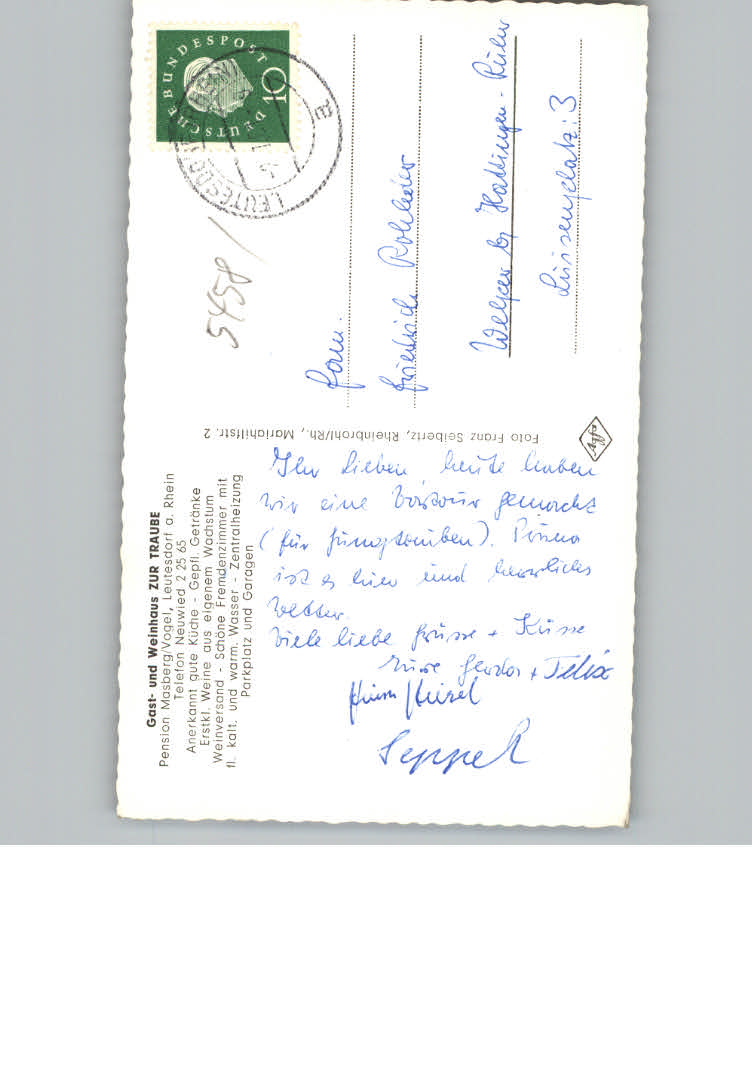 Gast- und Weinhaus ZUR TRAUBE
Pension Masberg/Vogel, Leutesdorf a. Rhein
Telefon Neuwied 2 25 65
Anerkannt gute Küche - Gepfl. Getränke
Erstkl. Weine aus eigenem Wachstum
Weinversand - Schöne Fremdenzimmer mit
fl. kalt. und warm. Wasser - Zentralheizung
Parkplatz und Garagen
Ihr Lieben, heute haben
wir eine Bootour gemacht
(für Jungtauben). Prima
ist es hier und herrliches
Wetter.
Viele liebe Grüsse + Küsse
Eure Gerda + Felix
Seppel
Foto Franz Seibertz, Rheinbrohl/Rh., Mariahilfstr. 2
Agfa
DEUTSCHE BUNDESPOST
10
LEUTESDORF
a
5458
Fam.
Friedrich
Welper b/ Hattingen-Ruhr
Luisenplatz: 3